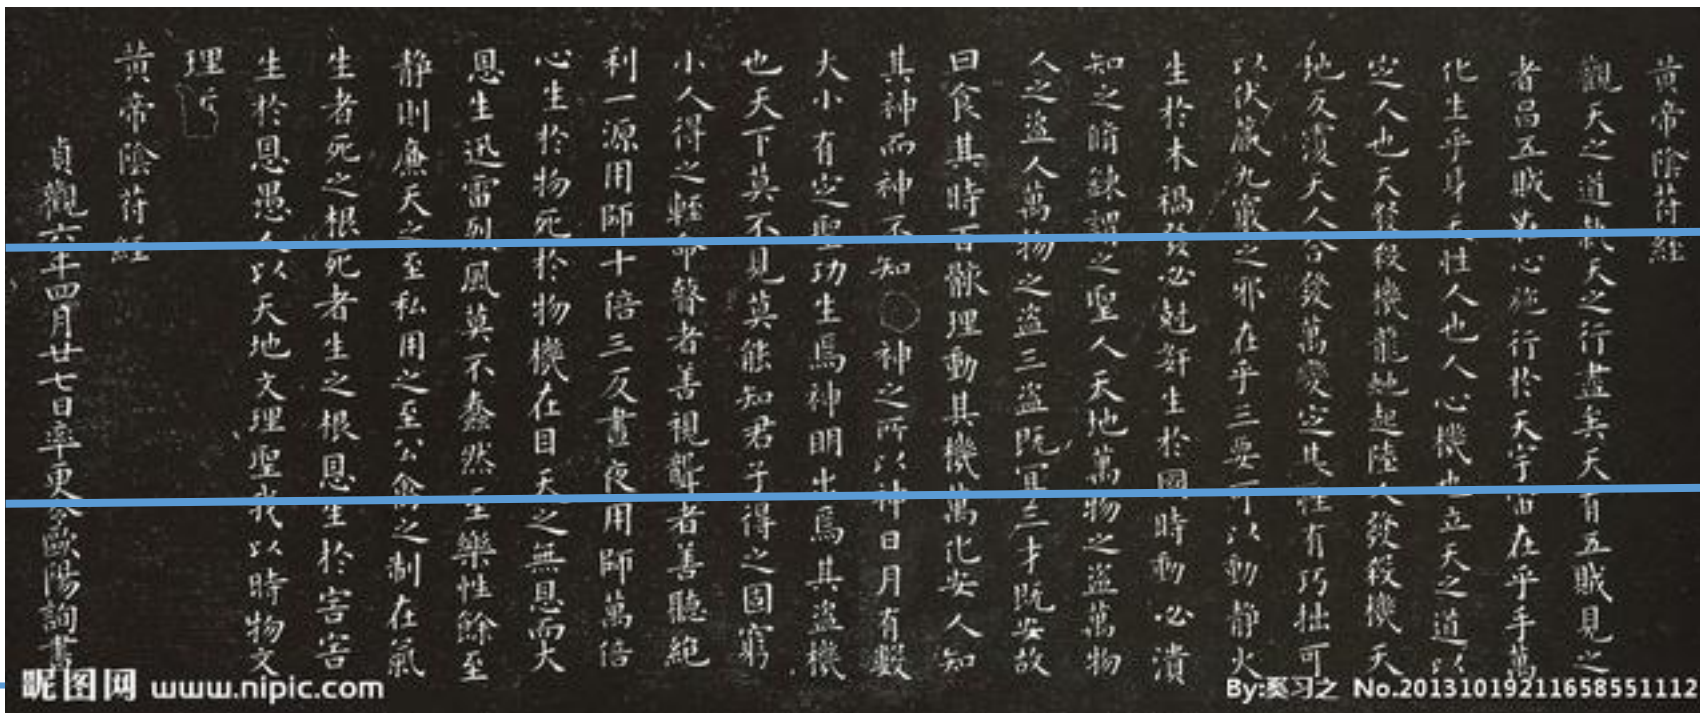 黃帝陰符經
觀天之道執天之行盡矣天有五賊見之
者昌五賊在心施行於天宇宙在乎手萬
化生乎身天性人也人心機也立天之道以
定人也天發殺機龍虵起陸人發殺機天
地反覆天人合發萬變定基性有巧拙可
以伏藏九竅之邪在乎三要可以動靜火
生於木禍發必尅奸生於國時動必潰
知之脩鍊謂之聖人天地萬物之盜萬物
人之盜人萬物之盜三盜既冝三才既安故
曰食其時百骸理動其機萬化安人知
其神而神不知神之所以神日月有數
大小有定聖功生焉神明出焉其盜機
也天下莫不見莫能知君子得之固窮
小人得之輕命瞽者善視聾者善聽絕
利一源用師十倍三反晝夜用師萬倍
心生於物死於物機在目天之無恩而大
恩生迅雷烈風莫不蠢然至樂性餘至
靜則廉天之至私用之至公禽之制在氣
生者死之根死者生之根恩生於害害
生於恩愚人以天地文理聖我以時物文
理
黃帝陰符經
貞觀六年四月廿七日率更令歐陽詢書
昵图网 www.nipic.com
By:奚习之 No.20131019211658551112